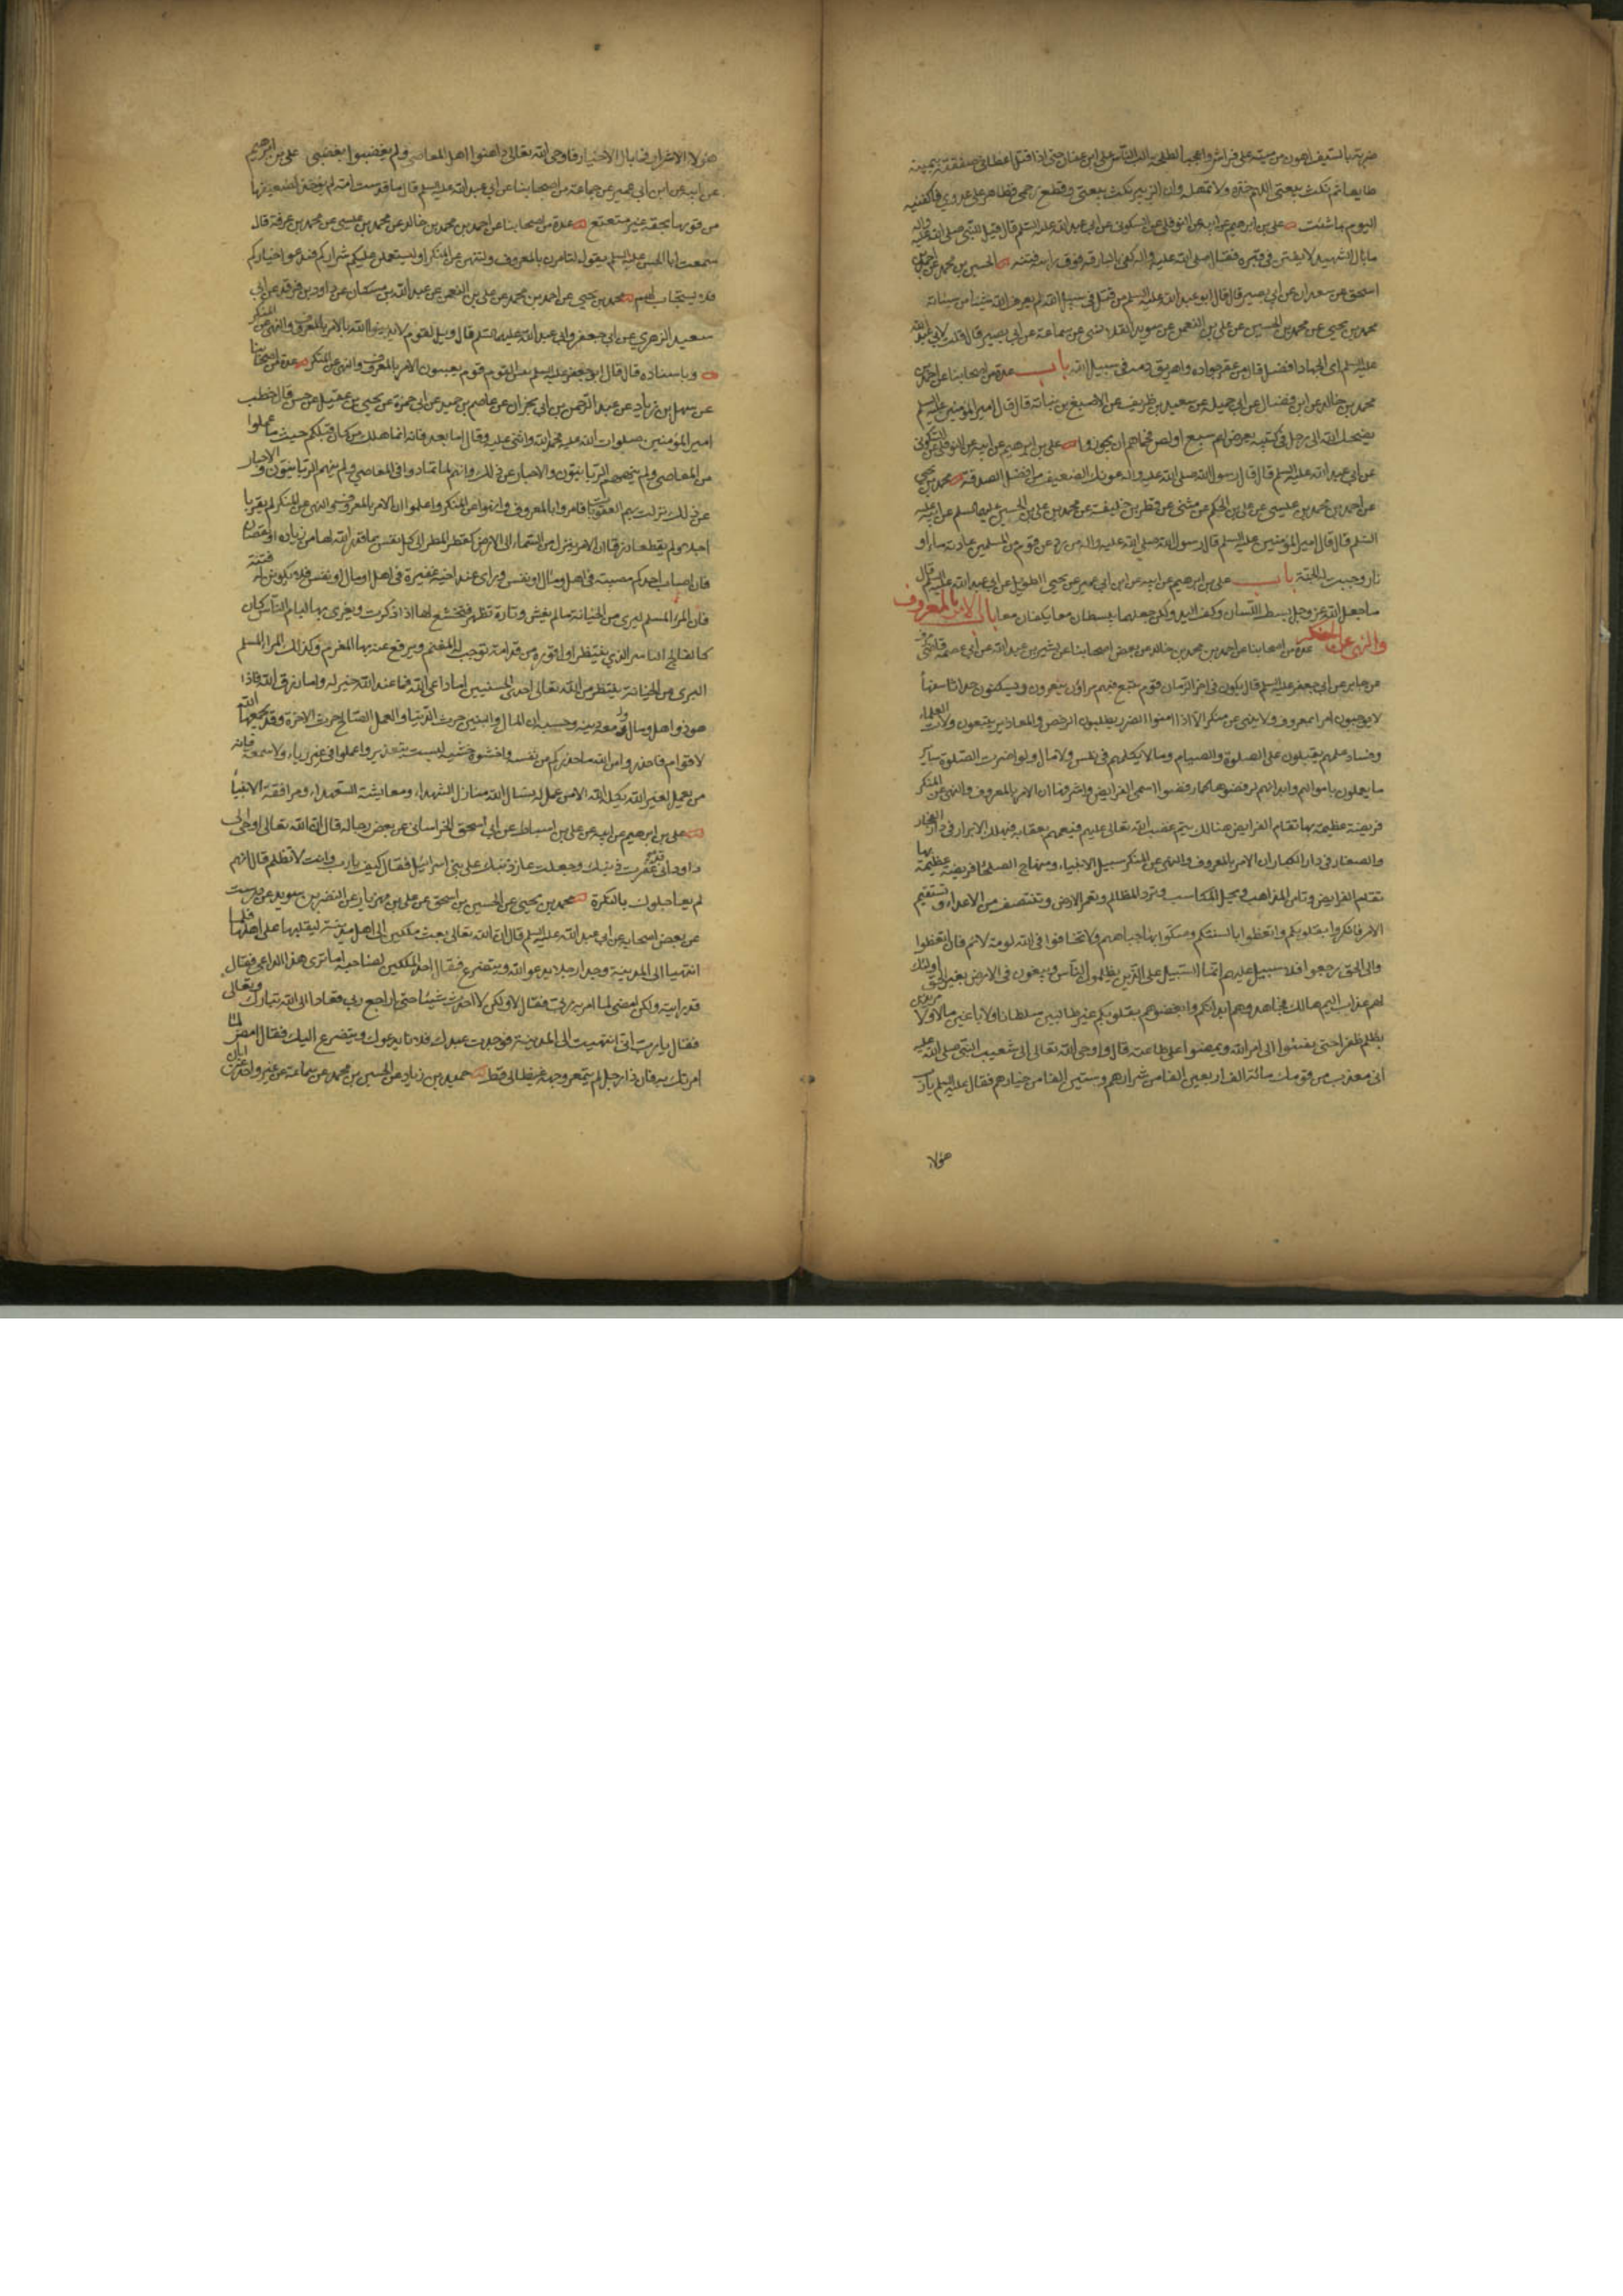 ضربة بالسيف اهون من ميتة على فراش واعجبا لطلحة الب الناس على ابن عفان حتى اذا قتل اعطانى صفقته بيمينه
طايعا ثم نكث بيعتى اللهم خذه ولا تمهله وان الزبير نكث بيعتى وقطع رحمى وظاهر على عدوى فاكفنيه
اليوم بما شئت على بن ابرهيم عن ابيه عن النوفلى عن السكونى عن ابى عبد الله عليه السلم قال قيل للنبى صلى الله عليه واله
ما بال الشهيد لا يفتن فى قبره فقال صلى الله عليه واله كفى بالبارقة فوق راسه فتنة الحسين بن محمد عن احمد بن
اسحق عن سعدان عن ابى بصير قال قال ابو عبد الله عليه السلم من قتل فى سبيل الله لم يعرفه الله شيئا من سيئاته
محمد بن يحيى عن محمد بن الحسين عن على بن النعمن عن سويد القلانسى عن سماعة عن ابى بصير قال قلت لابى عبد الله
عليه السلم اى الجهاد افضل قال من عقر جواده واهريق دمه فى سبيل الله باب عدة من اصحابنا عن احمد بن
محمد بن خالد عن ابن فضال عن ابى جميلة عن سعد بن ظريف عن الاصبغ بن نباتة قال قال امير المؤمنين عليه السلم
يضحك الله الى رجل فى كتيبة يعرض لهم سبع او لص فحماهم ان يجوزوا على بن ابرهيم عن ابيه عن النوفلى عن السكونى
عن ابى عبد الله عليه السلم قال قال رسول الله صلى الله عليه واله عونك الضعيف من افضل الصدقة محمد بن يحيى
عن احمد بن محمد بن عيسى عن على بن الحكم عن مثنى عن فطر بن خليفة عن محمد بن على بن الحسين عليهما السلم عن ابيه عليه
السلم قال قال امير المؤمنين عليه السلم قال رسول الله صلى الله عليه واله من رد عن قوم من المسلمين عادية ماء او
نار وجبت له الجنة باب على بن ابرهيم عن ابيه عن ابن ابى عمير عن يحيى الطويل عن ابى عبد الله عليه السلم قال
ما جعل الله عز وجل بسط اللسان وكف اليد ولكن جعلهما يبسطان معا ويكفان معا باب الامر بالمعروف
والنهى عن المنكر عدة من اصحابنا عن احمد بن محمد بن خالد عن بعض اصحابنا عن بشير بن عبد الله عن ابى عصمة قاضى مرو
عن جابر عن ابى جعفر عليه السلم قال يكون فى اخر الزمان قوم يتبع فيهم قوم مراؤن يتقرون ويتنسكون حدثاء سفهاء
لا يوجبون امرا بمعروف ولا نهى عن منكر الا اذا امنوا الضرر يطلبون الرخص والمعاذير يتبعون زلات العلماء
وفساد علمهم يقبلون على الصلوة والصيام وما لا يكلمهم فى نفس ولا مال ولو اضرت الصلوة بساير
ما يعملون باموالهم وابدانهم لرفضوها كما رفضوا اسمى الفرايض واشرفها ان الامر بالمعروف والنهى عن المنكر
فريضة عظيمة بها تقام الفرايض هنالك يتم غضب الله تعالى عليهم فيعمهم بعقابه فيهلك الابرار فى دار الفجار
والصغار فى دار الكبار ان الامر بالمعروف والنهى عن المنكر سبيل الانبياء ومنهاج الصلحاء فريضة عظيمة بها
تقام الفرايض وتامن المذاهب وتحل المكاسب وترد المظالم وتعمر الارض وتنتصف من الاعداء وتستقيم
الامر فانكروا بقلوبكم والفظوا بالسنتكم وصكوا بها جباههم ولا تخافوا فى الله لومة لائم فان اتعظوا
والى الحق رجعوا فلا سبيل عليهم انما السبيل على الذين يظلمون الناس ويبغون فى الارض بغير الحق اولئك
لهم عذاب اليم هنالك فجاهدوهم بابدانكم وابغضوهم بقلوبكم غير طالبين سلطانا ولا باغين مالا ولا مريدين
بظلم ظفرا حتى يفيئوا الى امر الله ويمضوا على طاعته قال واوحى الله تعالى الى شعيب النبى صلى الله عليه
انى معذب من قومك مائة الف اربعين الفا من شرارهم وستين الفا من خيارهم فقال عليه السلم يا رب
هؤلاء
هؤلاء الاشرار فما بال الاخيار فاوحى الله تعالى داهنوا اهل المعاصى ولم يغضبوا لغضبى على بن ابرهيم
عن ابيه عن ابن ابى عمير عن جماعة من اصحابنا عن ابى عبد الله عليه السلم قال ما قدست امة لم يؤخذ لضعيفها
من قويها بحقه غير متعتع عدة من اصحابنا عن احمد بن محمد بن خالد عن محمد بن عيسى عن محمد بن عرفة قال
سمعت ابا الحسن عليه السلم يقول لتامرن بالمعروف ولتنهن عن المنكر او ليستعملن عليكم شراركم فيدعو اخياركم
فلا يستجاب لهم محمد بن يحيى عن احمد بن محمد عن على بن النعمن عن عبد الله بن مسكان عن داود بن فرقد عن ابى
سعيد الزهرى عن ابى جعفر وابى عبد الله عليهما السلم قال ويل لقوم لا يدينون الله بالامر بالمعروف والنهى عن المنكر
وباسناده قال قال ابو جعفر عليه السلم بئس القوم قوم يعيبون الامر بالمعروف والنهى عن المنكر عدة من اصحابنا
عن سهل بن زياد عن عبد الرحمن بن ابى نجران عن عاصم بن حميد عن ابى حمزة عن يحيى بن عقيل عن حسن قال خطب
امير المؤمنين صلوات الله عليه فحمد الله واثنى عليه وقال اما بعد فانه انما هلك من كان قبلكم حيث ما عملوا
من المعاصى ولم ينههم الربانيون والاحبار عن ذلك وانهم لما تمادوا فى المعاصى ولم ينههم الربانيون والاحبار
عن ذلك نزلت بهم العقوبات فامروا بالمعروف وانهوا عن المنكر واعلموا ان الامر بالمعروف والنهى عن المنكر لم يقربا
اجلا ولم يقطعا رزقا ان الامر ينزل من السماء الى الارض كقطر المطر الى كل نفس بما قدر الله لها من زيادة او نقصان
فان اصاب احدكم مصيبة فى اهل ومال او نفس وراى عند اخيه غفيرة فى اهل او مال او نفس فلا تكونن له فتنة
فان المرء المسلم لبرى من الخيانة ما لم يغش دناءة تظهر فيخشع لها اذا ذكرت ويغرى بها لئام الناس كان
كالفالج الياسر الذى ينتظر اول فوزة من قداحه توجب له المغنم ويرفع عنه بها المغرم وكذلك المرء المسلم
البرى من الخيانة ينتظر من الله تعالى احدى الحسنيين اما داعى الله فما عند الله خير له واما رزق الله فاذا
هو ذو اهل ومال ومعه دينه وحسبه ان المال والبنين حرث الدنيا والعمل الصالح حرث الاخرة وقد يجمعهما الله
لاقوام فاحذروا من الله ما حذركم من نفسه واخشوه خشية ليست بتعذير واعملوا فى غير رياء ولا سمعة فانه
من يعمل لغير الله يكله الله الى من عمل له نسال الله منازل الشهداء ومعايشة السعداء ومرافقة الانبياء
على بن ابرهيم عن ابيه عن على بن اسباط عن ابى اسحق الخراسانى عن بعض رجاله قال ان الله تعالى اوحى الى
داود انى قد غفرت ذنبك وجعلت عار ذنبك على بنى اسرائيل فقال كيف يا رب وانت لا تظلم قال انهم
لم يعاجلوك بالنكرة محمد بن يحيى عن الحسين بن اسحق عن على بن مهزيار عن النضر بن سويد عن درست
عن بعض اصحابه عن ابى عبد الله عليه السلم قال ان الله تعالى بعث ملكين الى اهل مدينة ليقلباها على اهلها فلما
انتهيا الى المدينة وجدا رجلا يدعو الله ويتضرع فقال احد الملكين لصاحبه اما ترى هذا الداعى فقال
قد رايته ولكن امضى لما امر به ربى فقال لا ولكن لا احدث شيئا حتى اراجع ربى فعاد الى الله تبارك وتعالى
فقال يا رب انى انتهيت الى المدينة فوجدت عبدك فلانا يدعوك ويتضرع اليك فقال امض لما
امرتك به فان ذا رجل لم يتمعر وجهه غيظا لى قط حميد بن زياد عن الحسين بن محمد عن سماعة عن غير واحد عن ابان